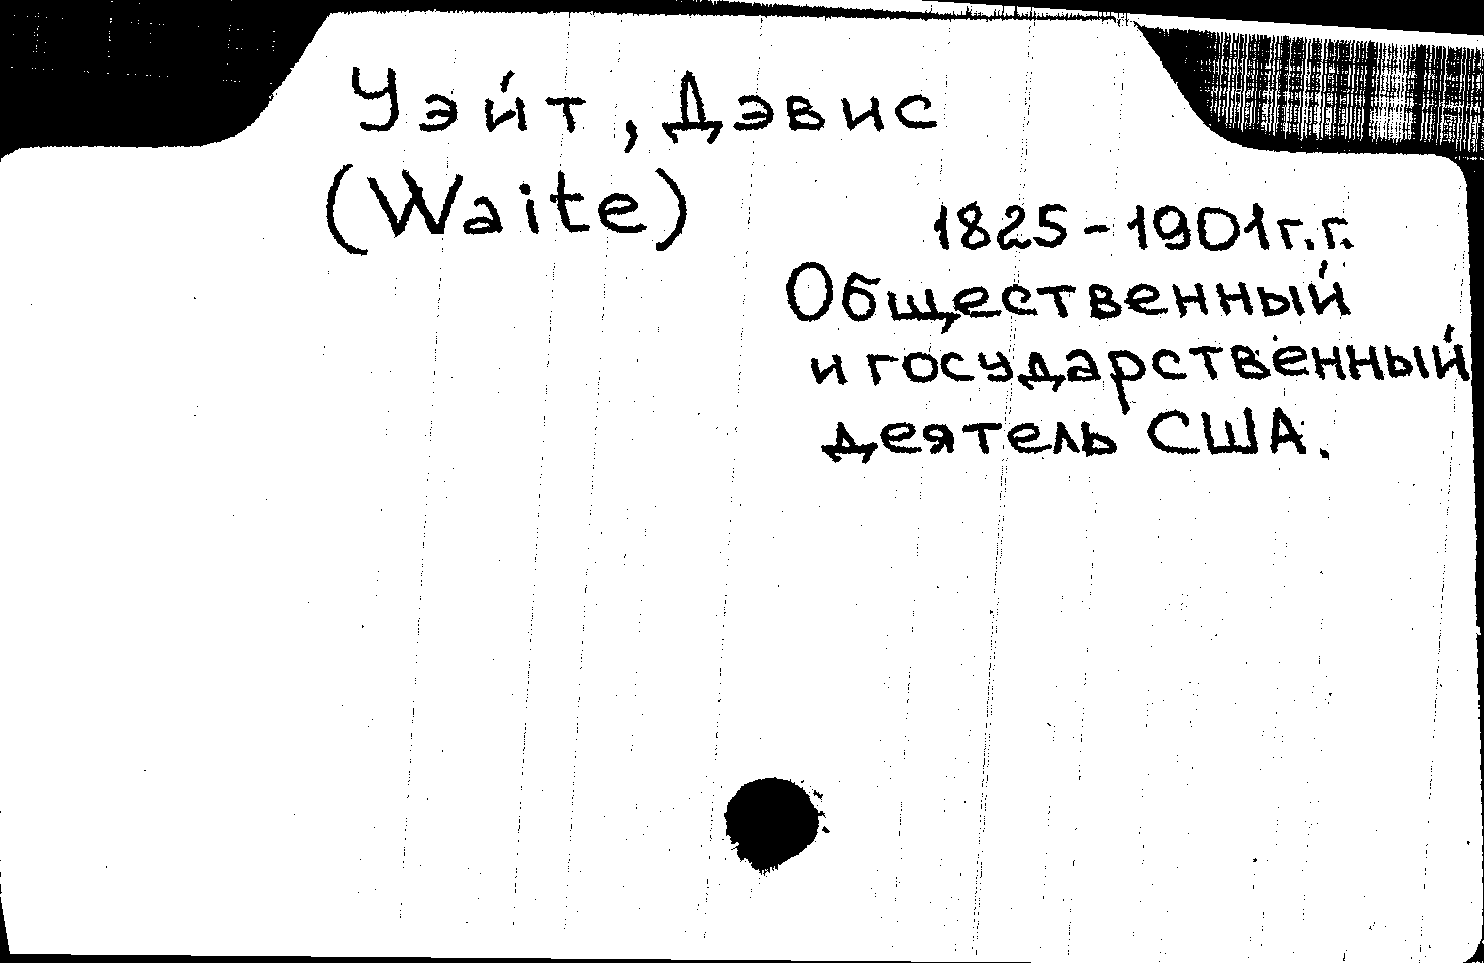 Уэйт, Дэвис
(Waite)
1825-1901г.г.
Общественный
и государственный
деятель США.